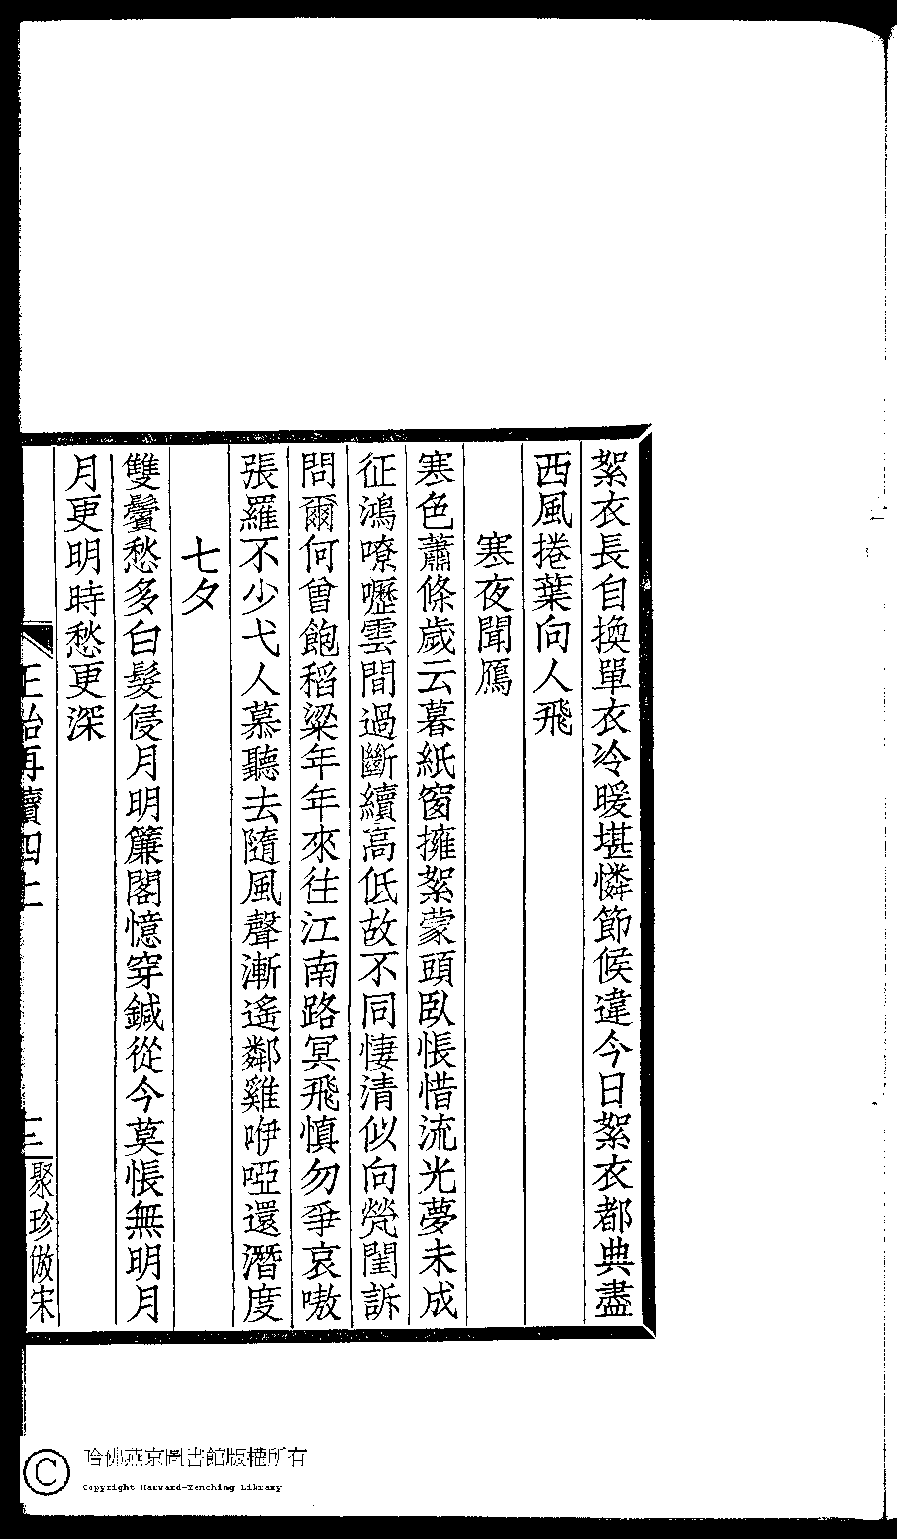 絮衣長自換單衣冷暖堪憐節候違今日絮衣都典盡
西風捲葉向人飛
寒夜聞鴈
寒色蕭條歲云暮紙窗擁絮蒙頭臥悵惜流光夢未成
征鴻嘹嚦雲間過斷續高低故不同悽清似向煢閨訴
問爾何曾飽稻粱年年來往江南路冥飛慎勿爭哀嗷
張羅不少弋人慕聽去隨風聲漸遙鄰雞咿啞還潛度
七夕
雙鬢愁多白髮侵月明簾閣憶穿鍼從今莫悵無明月
月更明時愁更深
再續四上
三
聚珍倣宋
哈佛燕京圖書館版權所有
Copyright Harvard-Yenching Library